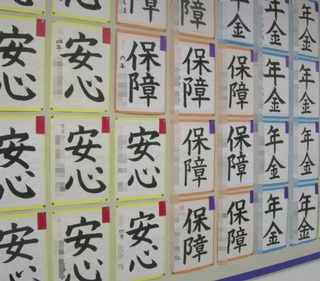 心
心
障
保障
年金
年金
年金
安心
安心
四年
保障
六年
保障
保障
年金
年金
安心
安心
安心
保障
保障
年金
年金
安心
安心
安心
四年
保障
保障
年金
年金